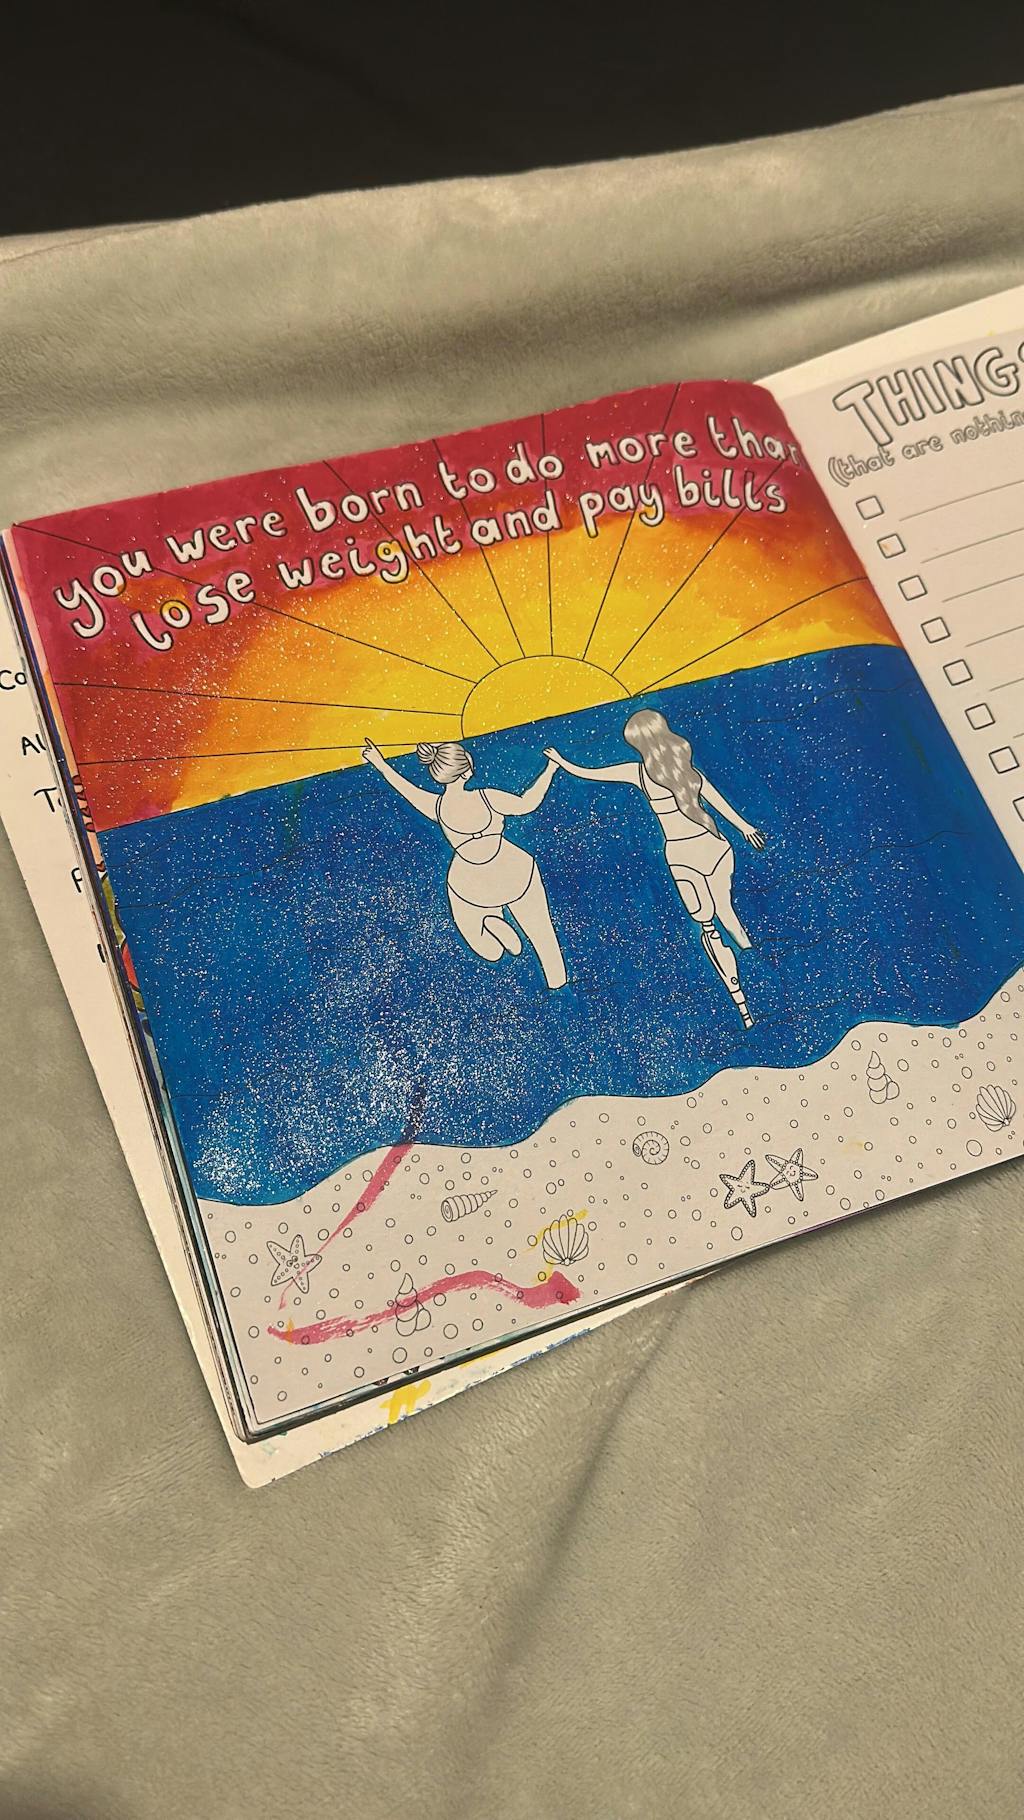 you were born to do more than
lose weight and pay bills
THINGS
(that are nothin
Co